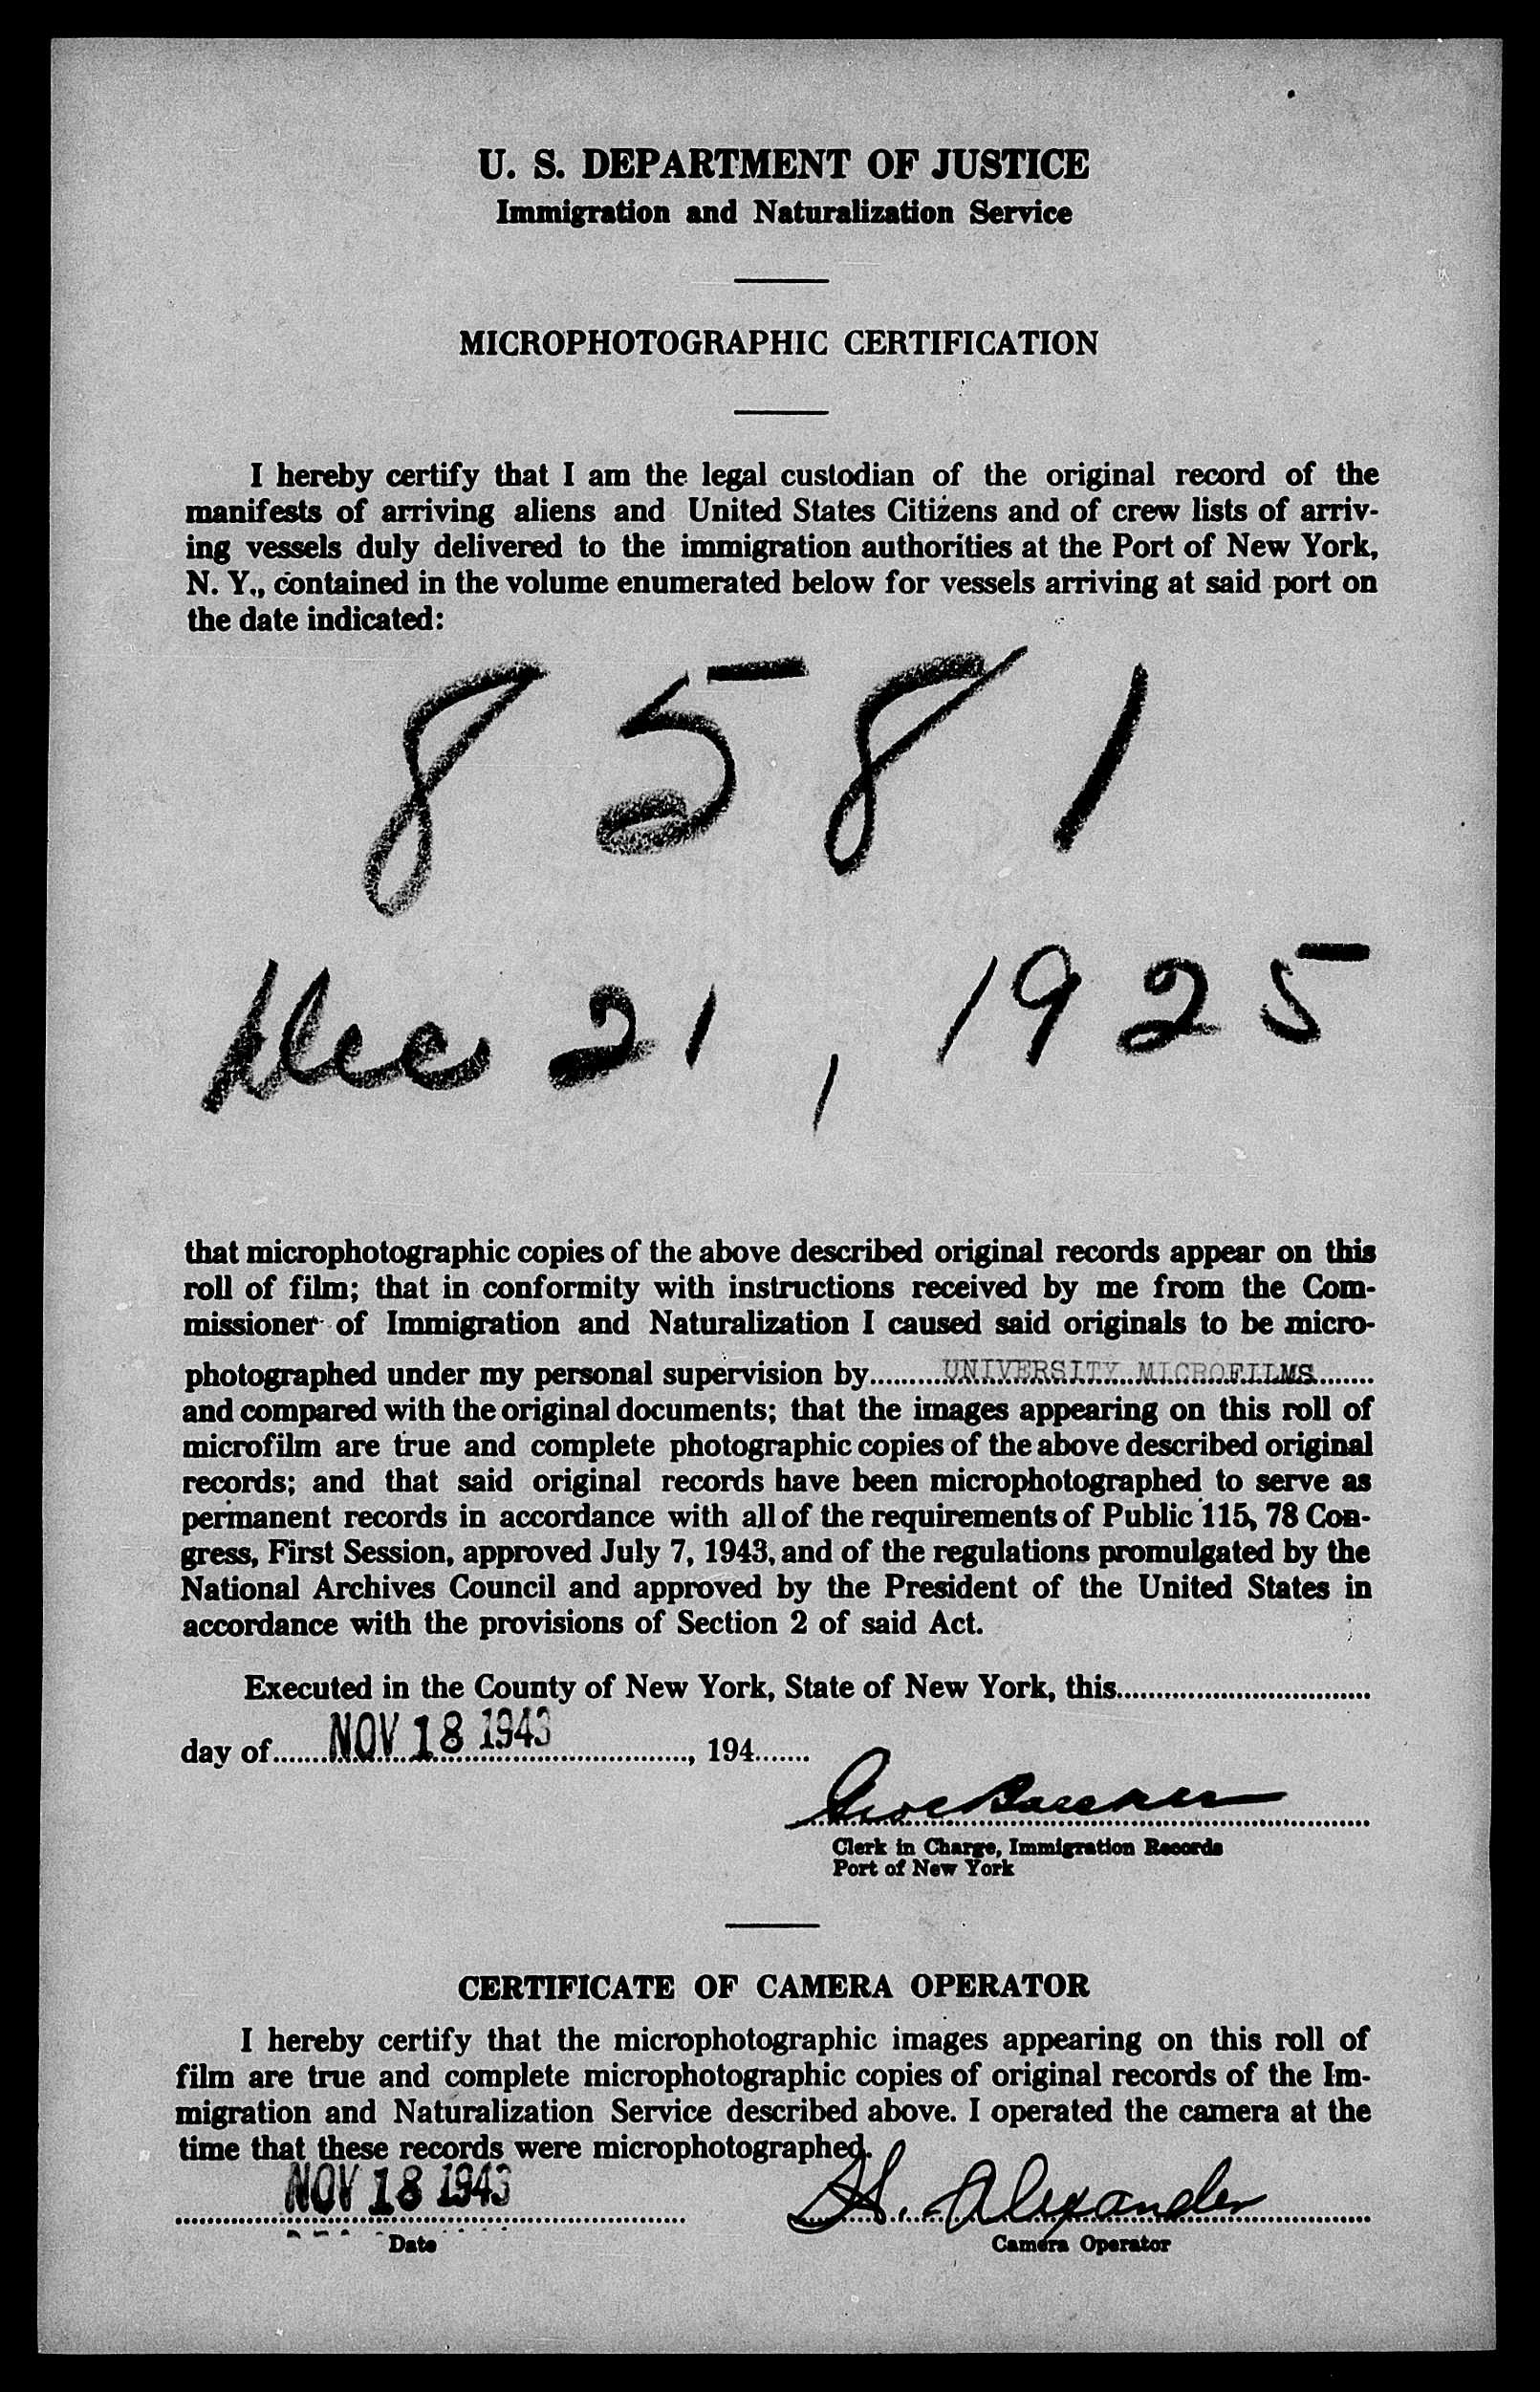 U. S. DEPARTMENT OF JUSTICE
Immigration and Naturalization Service
MICROPHOTOGRAPHIC CERTIFICATION
I hereby certify that I am the legal custodian of the original record of the
manifests of arriving aliens and United States Citizens and of crew lists of arriv-
ing vessels duly delivered to the immigration authorities at the Port of New York,
N. Y., contained in the volume enumerated below for vessels arriving at said port on
the date indicated:
8581
Dec 21, 1925
that microphotographic copies of the above described original records appear on this
roll of film; that in conformity with instructions received by me from the Com-
missioner of Immigration and Naturalization I caused said originals to be micro-
photographed under my personal supervision by UNIVERSITY MICROFILMS
and compared with the original documents; that the images appearing on this roll of
microfilm are true and complete photographic copies of the above described original
records; and that said original records have been microphotographed to serve as
permanent records in accordance with all of the requirements of Public 115, 78 Con-
gress, First Session, approved July 7, 1943, and of the regulations promulgated by the
National Archives Council and approved by the President of the United States in
accordance with the provisions of Section 2 of said Act.
Executed in the County of New York, State of New York, this
day of NOV 18 1943, 194
Clerk in Charge, Immigration Records
Port of New York
CERTIFICATE OF CAMERA OPERATOR
I hereby certify that the microphotographic images appearing on this roll of
film are true and complete microphotographic copies of original records of the Im-
migration and Naturalization Service described above. I operated the camera at the
time that these records were microphotographed.
NOV 18 1943
H. Alexander
Date
Camera Operator